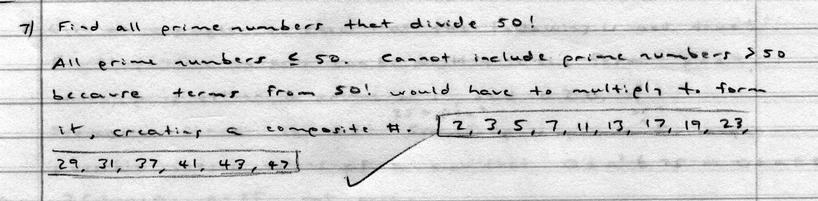 7) Find all prime numbers that divide 50!
All prime numbers ≤ 50. Cannot include prime numbers > 50
because terms from 50! would have to multiply to form
it, creating a composite #. 2, 3, 5, 7, 11, 13, 17, 19, 23,
29, 31, 37, 41, 43, 47